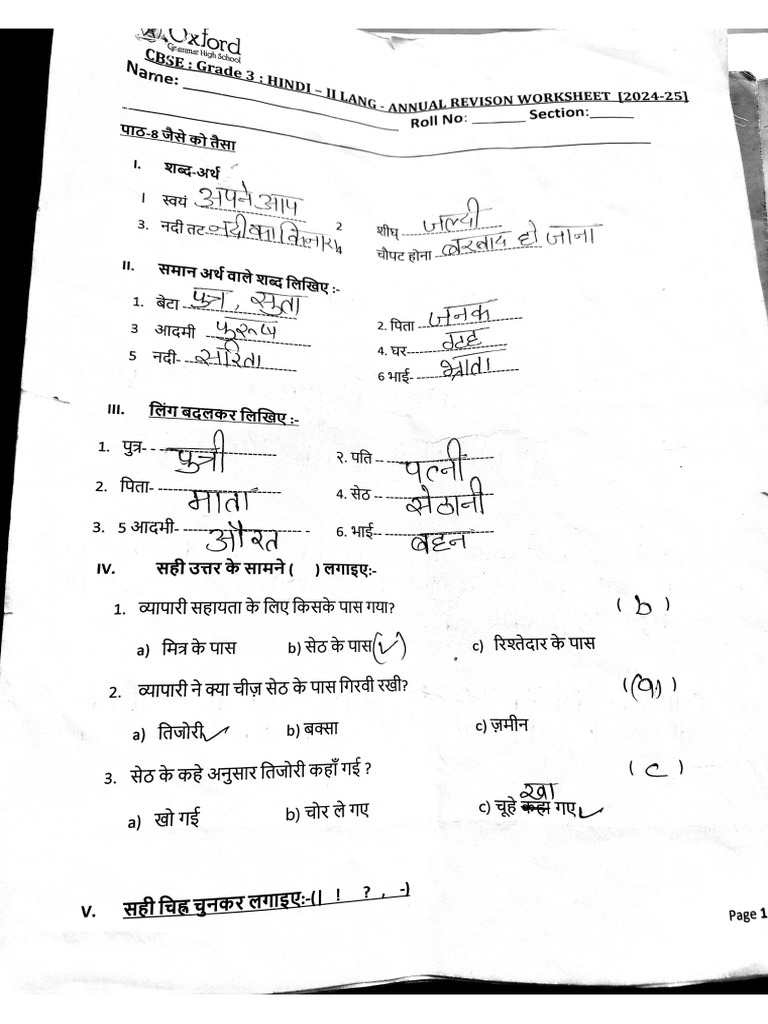 Oxford
Grammar High School
CBSE : Grade 3 : HINDI – II LANG - ANNUAL REVISON WORKSHEET [2024-25]
Name: Roll No: Section:
पाठ-8 जैसे को तैसा
I. शब्द-अर्थ
I स्वयं अपने आप 2 शीघ्र जल्दी
3. नदी तट नदी का किनारा 4 चौपट होना बरबाद हो जाना
II. समान अर्थ वाले शब्द लिखिए :-
1. बेटा पुत्र, सुता 2. पिता जनक
3 आदमी पुरूष 4. घर
5 नदी- सरिता 6 भाई- भ्राता
III. लिंग बदलकर लिखिए :-
1. पुत्र- पुत्री २. पति पत्नी
2. पिता- माता 4. सेठ सेठानी
3. 5 आदमी- औरत 6. भाई- बहन
IV. सही उत्तर के सामने ( ) लगाइए:-
1. व्यापारी सहायता के लिए किसके पास गया? (b)
a) मित्र के पास b) सेठ के पास(✓) c) रिश्तेदार के पास
2. व्यापारी ने क्या चीज़ सेठ के पास गिरवी रखी? (a)
a) तिजोरी ✓ b) बक्सा c) ज़मीन
3. सेठ के कहे अनुसार तिजोरी कहाँ गई ? (c)
a) खो गई b) चोर ले गए c) चूहे खा गए ✓
V. सही चिह्न चुनकर लगाइए:-(| ! ? , -)
Page 1